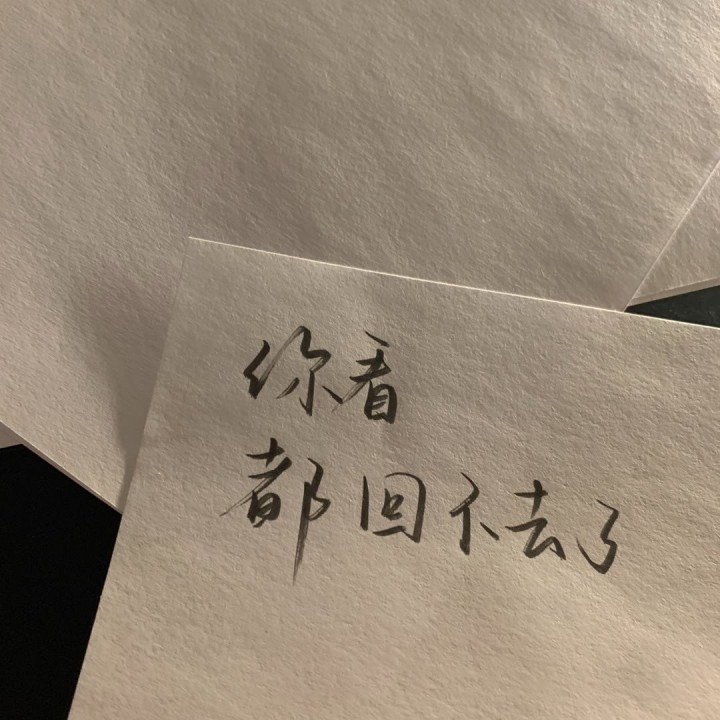 你看
都回不去了